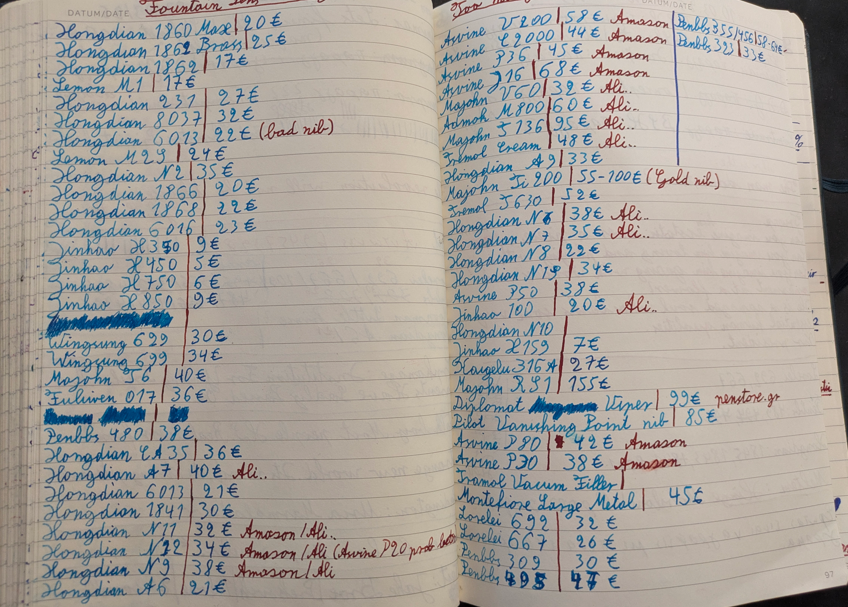 DATUM/DATE
Fountain
Hongdian 1860 Max | 20€
Hongdian 1862 Brass | 25€
Hongdian 1862 | 17€
Lemon M1 | 17€
Hongdian 231 | 27€
Hongdian 8037 | 32€
Hongdian 6013 | 22€ (bad nib)
Lemon M29 | 24€
Hongdian N2 | 35€
Hongdian 1866 | 20€
Hongdian 1868 | 22€
Hongdian 6016 | 23€
Jinhao X350 | 9€
Jinhao X450 | 5€
Jinhao X750 | 6€
Jinhao X850 | 9€
Wingsung 629 | 30€
Wingsung 699 | 34€
Majohn T6 | 40€
Fuliwen 017 | 36€
Penbbs 480 | 38€
Hongdian CA35 | 36€
Hongdian A7 | 40€ Ali..
Hongdian 6013 | 21€
Hongdian 1841 | 30€
Hongdian N11 | 32€ Amason/Ali..
Hongdian N12 | 34€ Amason/Ali (Asvine P20 prob.
Hongdian N9 | 38€ Amason/Ali
Hongdian A6 | 21€
DATUM/DATE
Too
Asvine V200 | 58€ Amason
Asvine C2000 | 44€ Amason
Asvine P36 | 45€ Amason
Asvine J16 | 68€ Amason
Majohn V60 | 32€ Ali..
Admok M800 | 60€ Ali..
Majohn T136 | 95€ Ali..
Tramol Cream | 48€ Ali..
Hongdian A9 | 33€
Majohn Ti200 | 55-100€ (Gold nib)
Tramol T630 | 52€
Hongdian N6 | 38€ Ali..
Hongdian N7 | 35€ Ali..
Hongdian N8 | 22€
Hongdian N19 | 34€
Asvine P50 | 38€
Jinhao 100 | 20€ Ali..
Hongdian N10 |
Jinhao X159 | 7€
Kaigelu 316A | 27€
Majohn RS1 | 155€
Diplomat Viper | 99€ penstore.gr
Pilot Vanishing Point nib | 85€
Asvine P80 | 42€ Amason
Asvine P30 | 38€ Amason
Tramol Vacum Filler |
Montefiore Large Metal | 45€
Lorelei 699 | 32€
Lorelei 667 | 26€
Penbbs 309 | 30€
Penbbs 495 | 47€
Penbbs 355/456 | 58-61€
Penbbs 323 | 33€
97